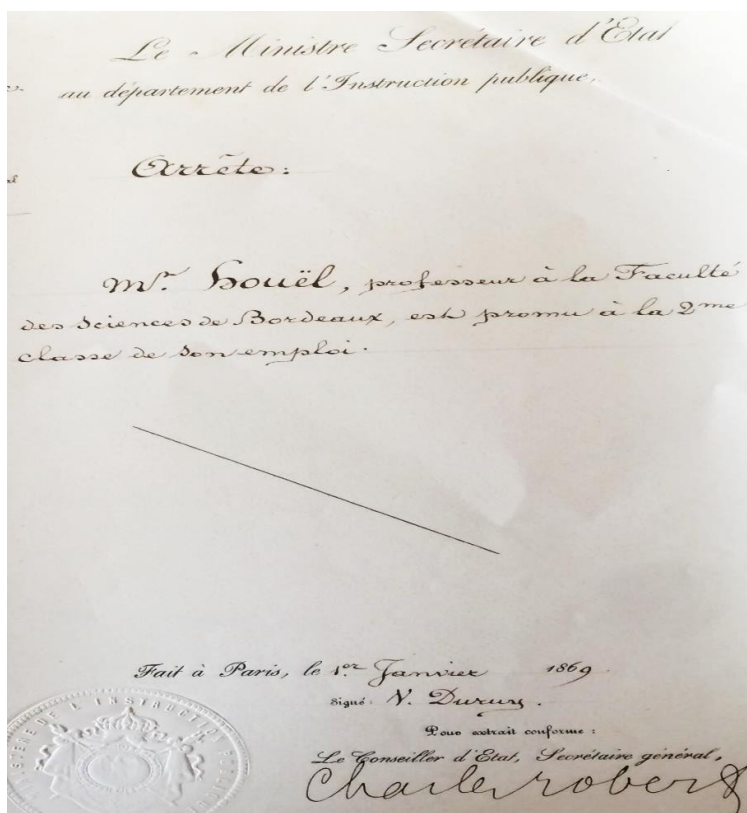 Le Ministre Secrétaire d'Etat
au département de l'Instruction publique,
Arrête:
Mr. Houël, professeur à la Faculté
des Sciences de Bordeaux, est promu à la 2me
classe de son emploi.
Fait à Paris, le 1er Janvier 1869
Signé: V. Duruy.
Pour extrait conforme:
Le Conseiller d'Etat, Secrétaire général,
Charles robert
DE L'INSTRUCTION